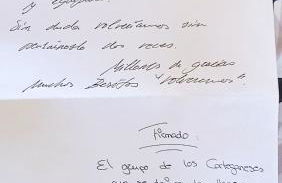 y
Sin duda volveríamos sin
pensárnoslo dos veces.
Millones de gracias
Muchos Besitos "Volveremos".
Firmado
El grupo de los Cartageneses
que se